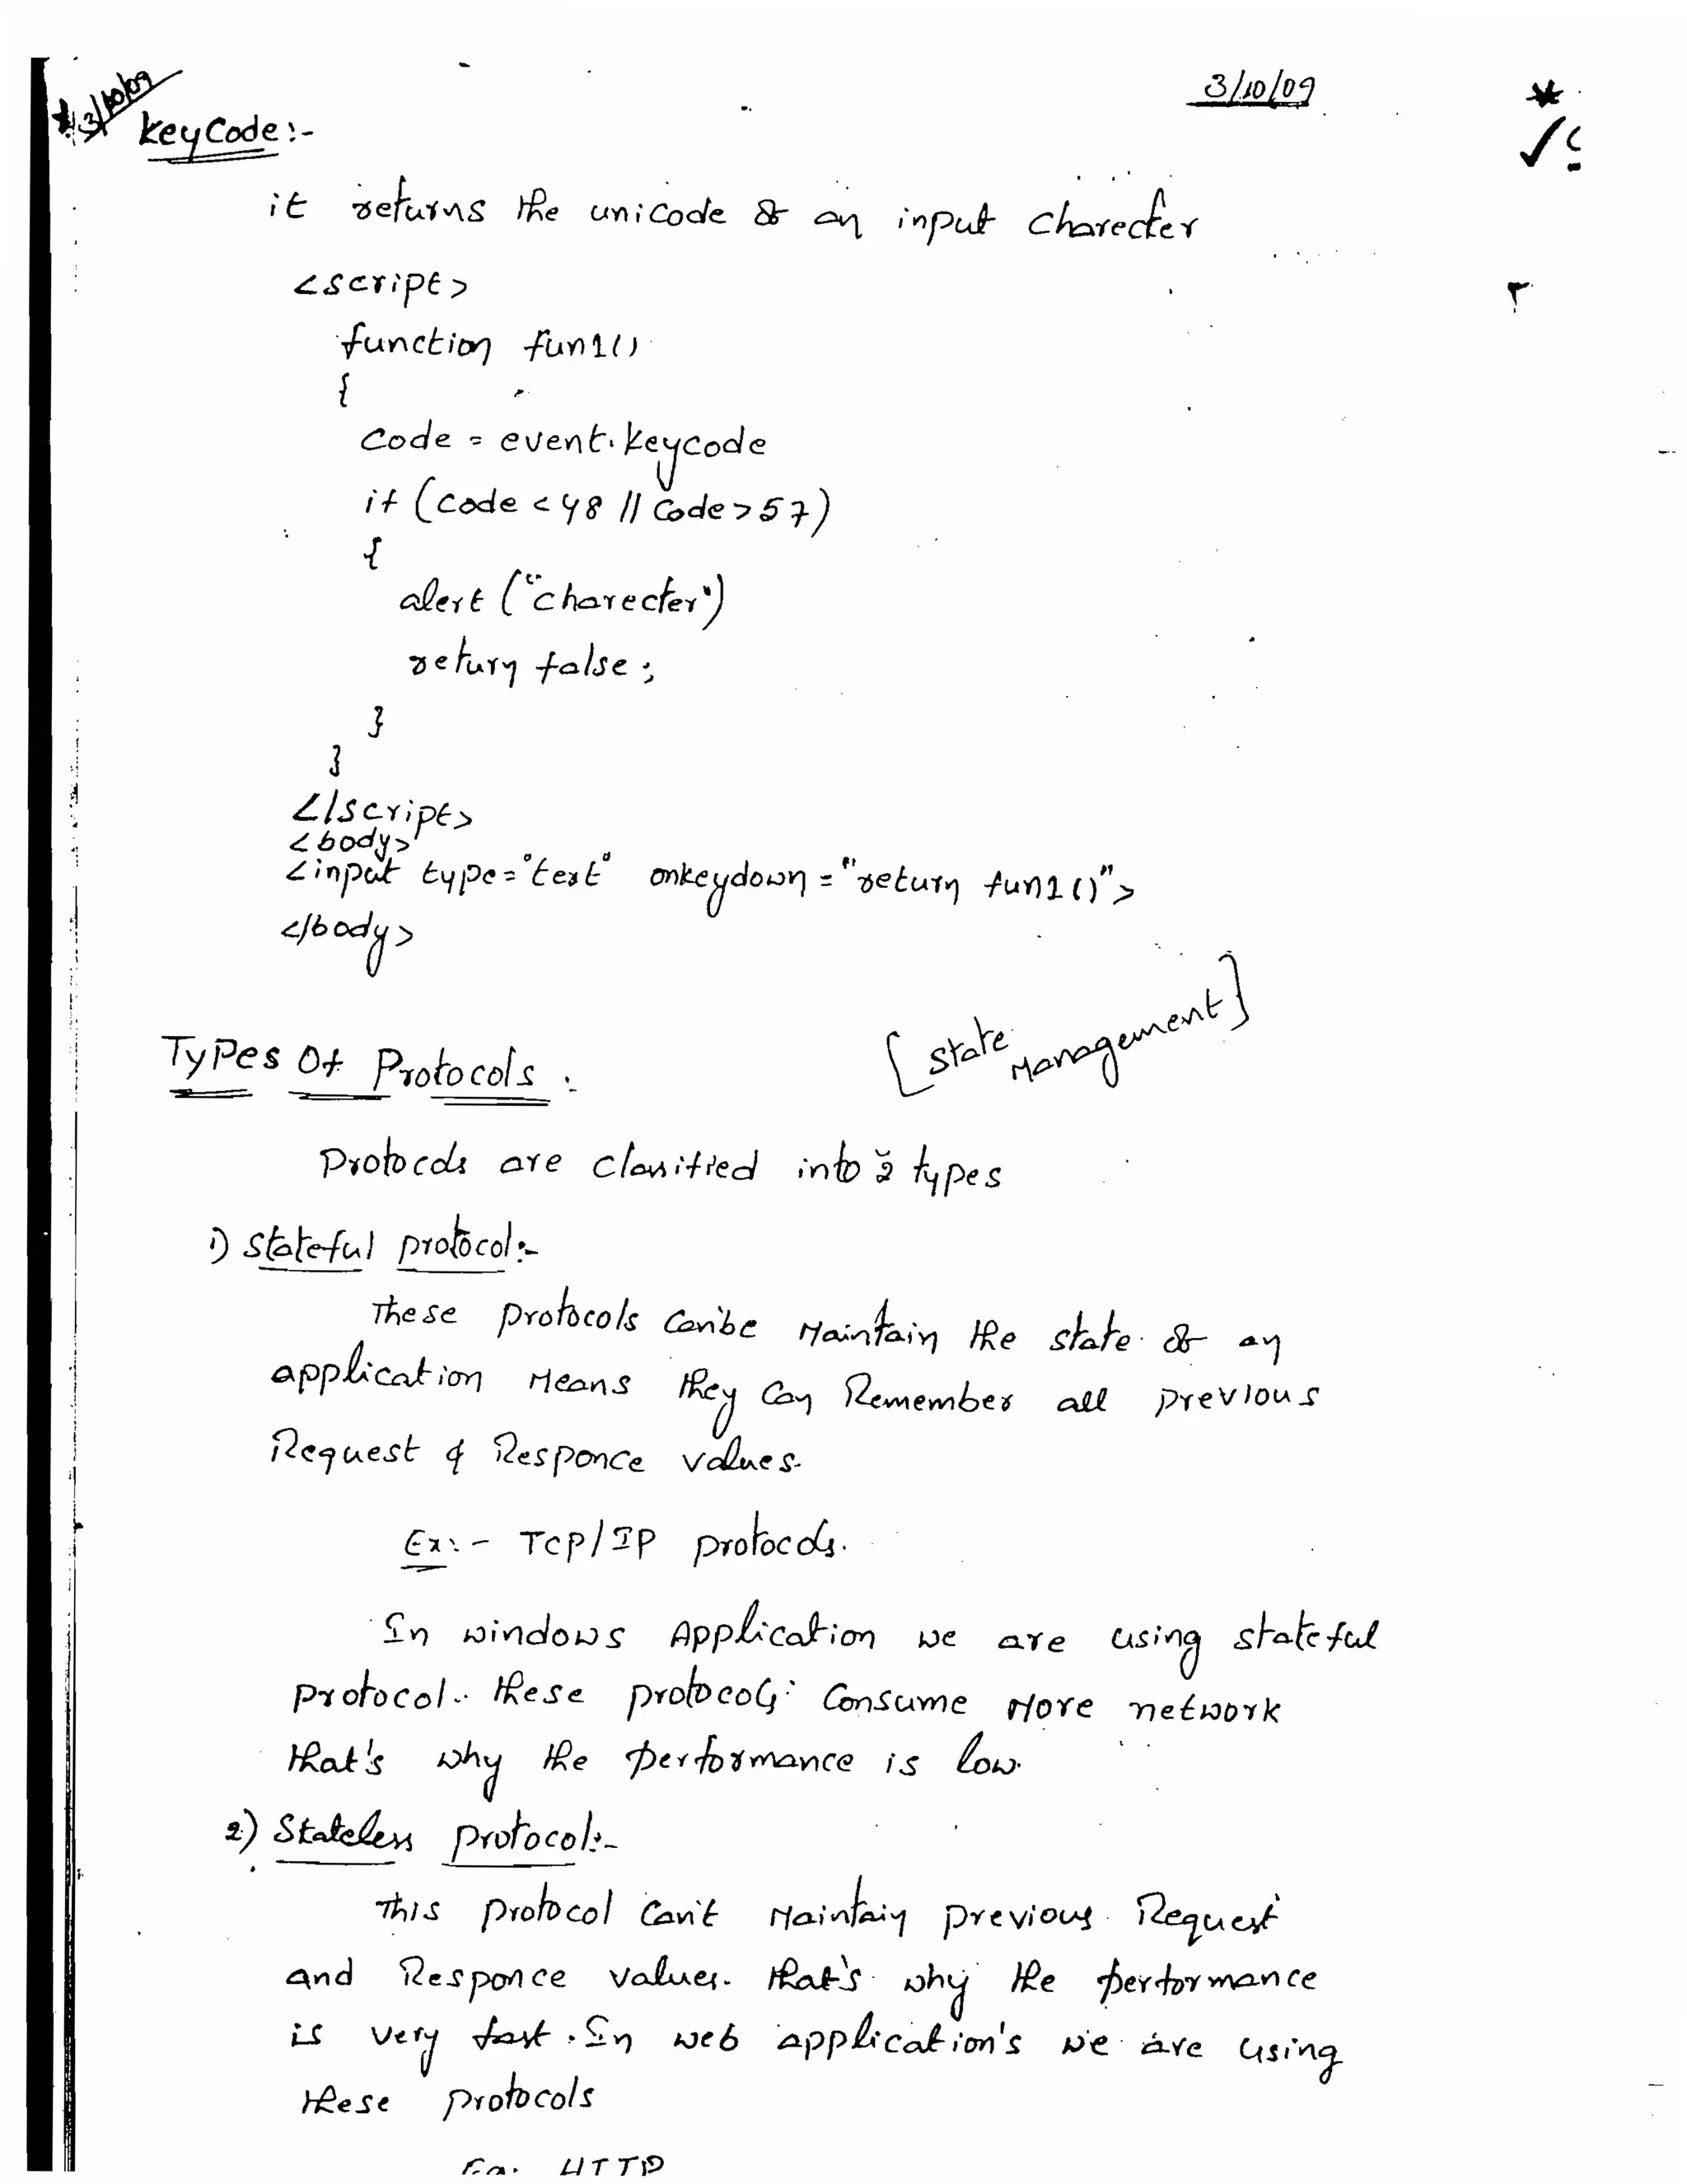 3/10/09
3/10/09
KeyCode:-
it returns the unicode of an input charecter
<script>
function fun1()
{
code = event.keycode
if (code < 48 || code > 57)
{
alert ("charecter")
return false;
}
}
</script>
<body>
<input type="text" onkeydown = "return fun1()">
</body>
[State Management]
Types Of Protocols :-
Protocols are classified into 2 types
1) Stateful protocol:-
These protocols can be Maintain the state of an
application Means they can Remember all previous
Request & Responce values.
Ex:- TCP/IP protocols.
In windows Application we are using stateful
protocol. these protocols consume More network
that's why the performance is low.
2) Stateless protocol:-
This protocol can't Maintain previous Request
and Responce values. that's why the performance
is very fast. In web application's we are using
these protocols
Ex: HTTP